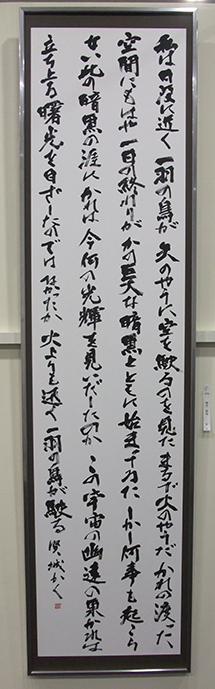 私は日没に近く一羽の鳥が矢のやうに空を駛るのを見たまるで火のやうだかれの渡った
空間にはもはや一日の終りがかの巨大な暗黒とともに始まってゐたしかし何事も起こら
ない此の暗黒の涯にかれは今何の光輝を見いだしたのかこの宇宙の幽遠の果かれは
立ち上る曙光を目ざしたのではなかったか火よりも迅く一羽の鳥が駛る 城かく